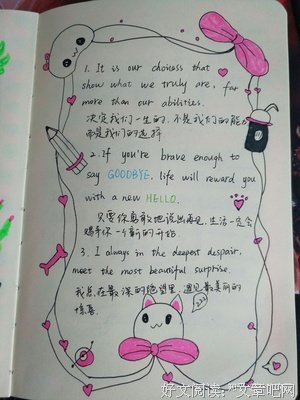 1. It is our choices that
show what we truly are, far
more than our abilities.
决定我们一生的,不是我们的能力
而是我们的选择
2. If you're brave enough to
say GOODBYE, life will reward you
with a new HELLO.
只要你勇敢地说出再见,生活一定会
赐予你一个新的开始.
3. I always in the deepest despair,
meet the most beautiful surprise.
我总在最深的绝望里,遇见最美丽的
惊喜.
zzz
好文阅读,尽在文章吧网